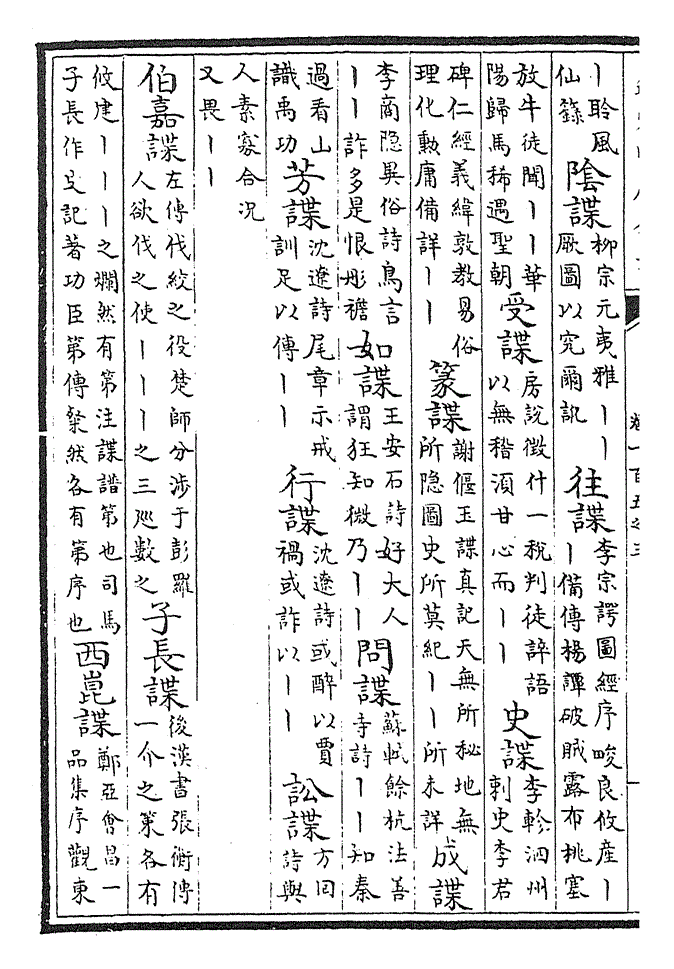 丨聆風仙籙陰諜柳宗元夷雅丨丨厥圖以究爾訊往諜李宗諤圖經序畯良攸產丨丨備傳楊譚破賊露布桃塞
放牛徒聞丨丨華陽歸馬稀遇聖朝受諜房說徴什一稅判徒辭語以無稽湏甘心而丨丨史諜李軫泗州刺史李君
碑仁經義緯敦教易俗理化勲庸備詳丨丨篆諜謝偃玉諜真記天無所秘地無所隐圖史所莫紀丨丨所未詳成諜
李商隐異俗詩鳥言丨丨詐多是恨彤襜如諜王安石詩好大人謂狂知微乃丨丨問諜蘇軾餘杭法善寺詩丨丨知秦
過看山識禹功芳諜沈遼詩尾章示戒訓足以傳丨丨行諜沈遼詩或醉以賈禍或詐以丨丨訟諜方回詩與
人素寡合况又畏丨丨
伯嘉諜左傳伐絞之役楚師分涉于彭羅人欲伐之使丨丨丨之三廵數之子長諜後漢書張衡傳一介之策各有
攸建丨丨丨之爛然有第注諜譜第也司馬子長作史記著功臣等傳粲然各有第序也西崑諜鄭亞會昌一品集序觀東
卷一百五之三